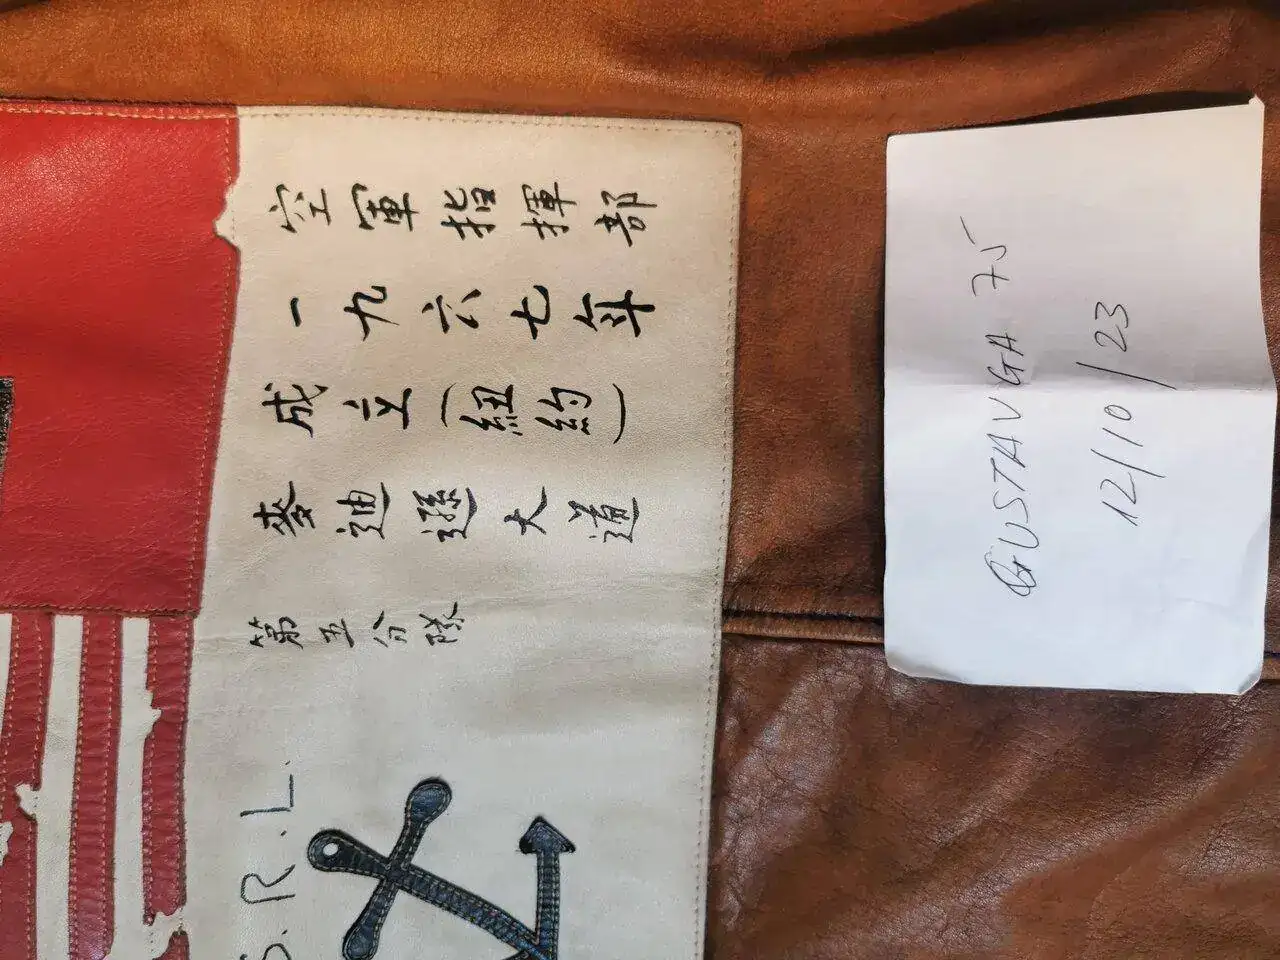 空軍指揮部
一九六七年
成立(紐約)
麥迪遜大道
第五分隊
S.R.L.
GUSTAVGA 75
12/10/23